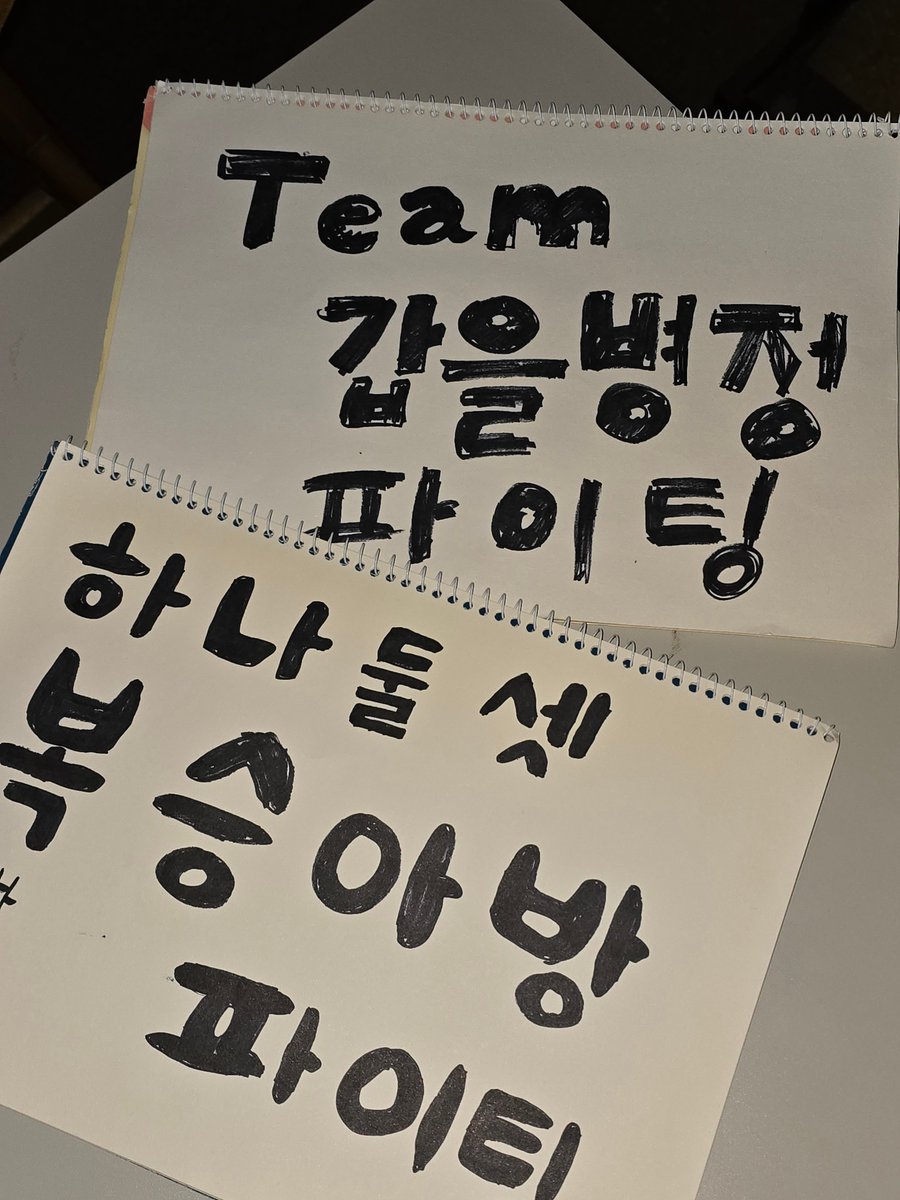 Team
갑을병정
파이팅
하나 둘 셋
복승아방
파이티